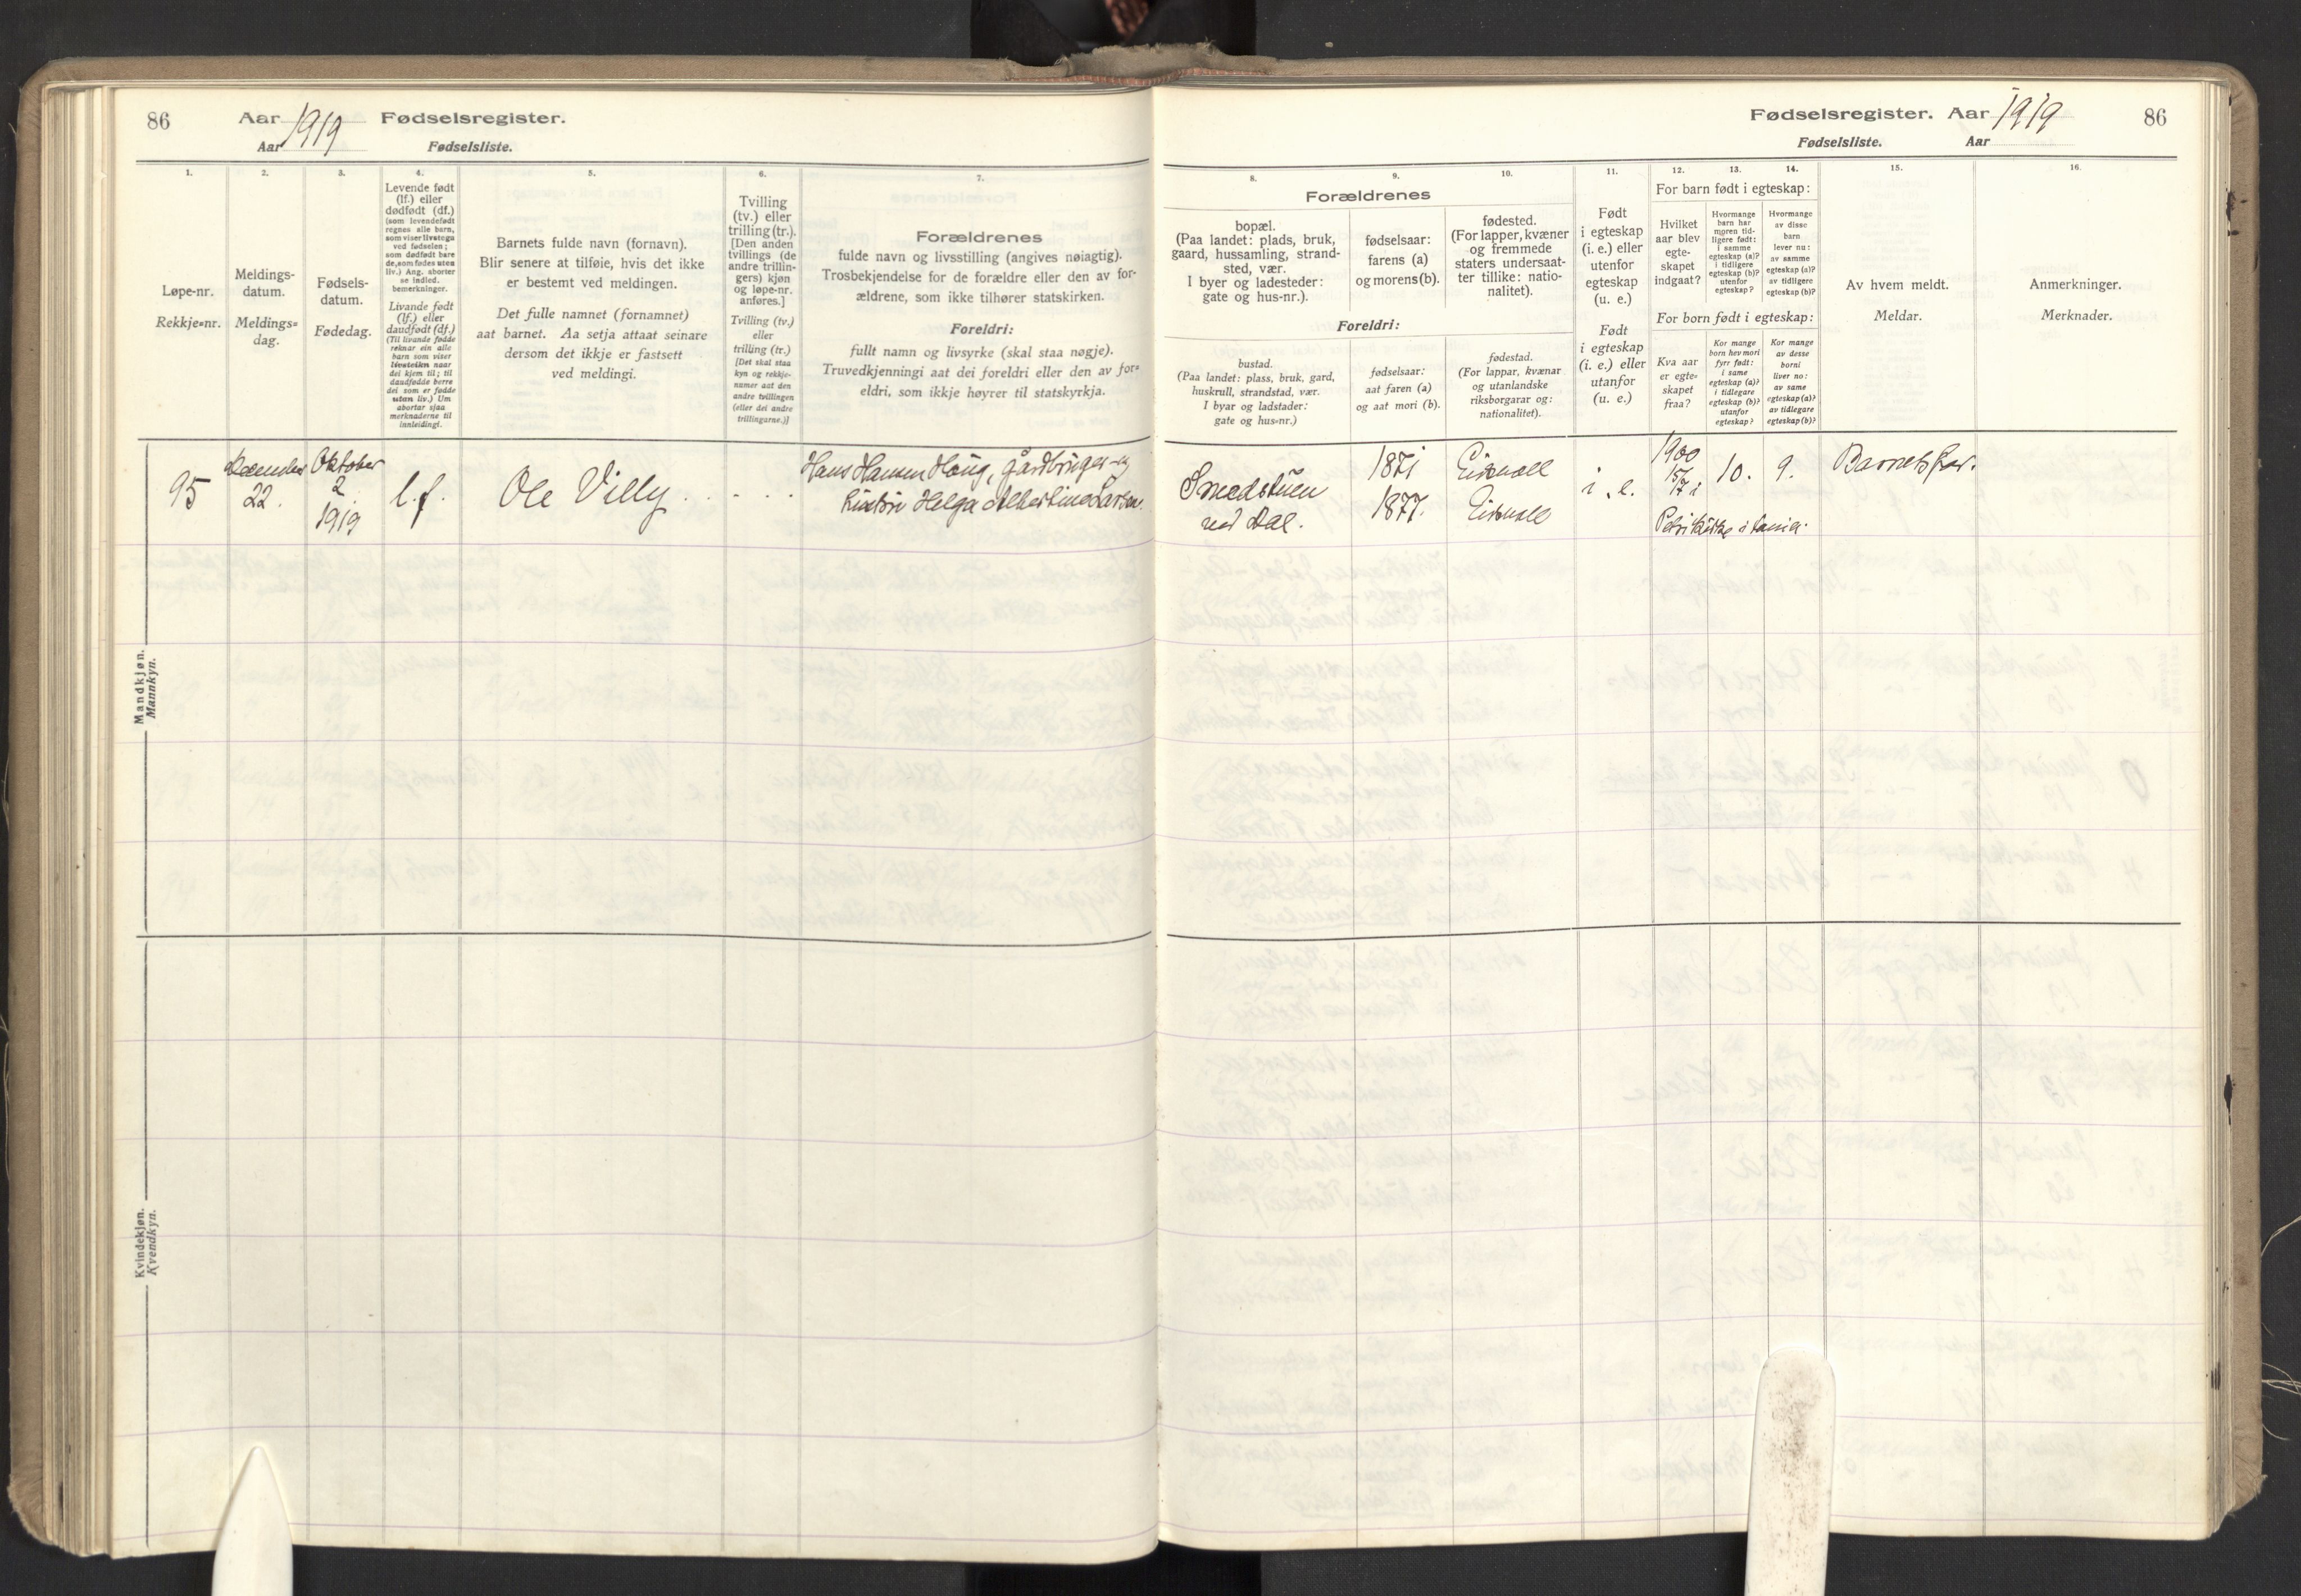 86 Aar 1919 Fødselsregister.
Aar Fødselsliste.
1. 2. 3. 4. 5. 6. 7.
Løpe-nr.
Rekkje-nr.
Meldings-
datum.
Meldings-
dag.
Fødsels-
datum.
Fødedag.
Levende født
(lf.) eller
dødfødt (df.)
(som levendefødt
regnes alle barn,
som viser livstegn
ved fødselen;
som dødfødt bare
de, som fødes uten
liv.) Ang. aborter
se indled.
bemerkninger.
Livande født
(lf.) eller
daudfødt (df.)
(Til livande fødde
reknar ein alle
barn som viser
livsteikn naar
dei kjem til; til
daudfødde berre
dei som er fødde
utan liv.) Um
abortar sjaa
merknaderne til
innleidingi.
Barnets fulde navn (fornavn).
Blir senere at tilføie, hvis det ikke
er bestemt ved meldingen.
Det fulle namnet (fornamnet)
aat barnet. Aa setja attaat seinare
dersom det ikkje er fastsett
ved meldingi.
Tvilling
(tv.) eller
trilling (tr.).
[Den anden
tvillings (de
andre trillin-
gers) kjøn
og løpe-nr.
anføres.]
Tvilling (tv.)
eller
trilling (tr.)
[Det skal staa
kyn og rekkje-
numer aat den
andre tvillingen
(eller dei andre
trillingarne.)]
Forældrenes
fulde navn og livsstilling (angives nøiagtig).
Trosbekjendelse for de forældre eller den av for-
ældrene, som ikke tilhører statskirken.
Foreldri:
fullt namn og livsyrke (skal staa nøgje).
Truvedkjenningi aat dei foreldri eller den av for-
eldri, som ikkje høyrer til statskyrkja.
Mandkjøn.
Mannkyn.
95
December
22.
Oktober
2.
1919
l.f.
Ole Villy
Hans Hansen Haug, gårdbruger og
hustru Helga Albertine Larsen.
Kvindekjøn.
Kvendkyn.
Fødselsregister. Aar 1919 86
Fødselsliste. Aar
8. 9. 10. 11. 12. 13. 14. 15. 16.
Forældrenes
bopæl.
(Paa landet: plads, bruk,
gaard, hussamling, strand-
sted, vær.
I byer og ladesteder:
gate og hus-nr.).
fødselsaar:
farens (a)
og morens (b).
fødested.
(For lapper, kvæner
og fremmede
staters undersaat-
ter tillike: natio-
nalitet).
Foreldri:
bustad.
(Paa landet: plass, bruk, gard,
huskrull, strandstad, vær.
I byar og ladstader:
gate og hus-nr.)
fødselsaar:
aat faren (a)
og aat mori (b).
fødestad.
(For lappar, kvænar
og utanlandske
riksborgarar og:
nationalitet).
Født
i egteskap
(i. e.) eller
utenfor
egteskap
(u. e.)
Født
i egteskap
(i. e.) eller
utanfor
(u. e.)
For barn født i egteskap:
Hvilket
aar blev
egte-
skapet
indgaat?
Hvormange
barn har
moren tid-
ligere født:
i samme
egteskap (a)?
i tidligere
egteskap (b)?
utenfor
egteskap?
Hvormange
av disse
barn
lever nu:
av samme
egteskap (a)?
av tidligere
egteskap (b)?
For born født i egteskap:
Kva aar
er egte-
skapet
fraa?
Kor mange
born hev mori
fyrr født:
i same
egteskap (a)?
i tidlegare
egteskap (b)?
utanfor
egteskap?
Kor mange
av desse
borni
liver no:
av same
egteskap (a)?
av tidlegare
egteskap (b)?
Av hvem meldt.
Meldar.
Anmerkninger.
Merknader.
Smedstuen
ved Dal.
1871
1877.
Eidsvoll
Eidsvoll
i. e.
1900
15/7 i
Petri kirke
10. 9.
Barnets far.